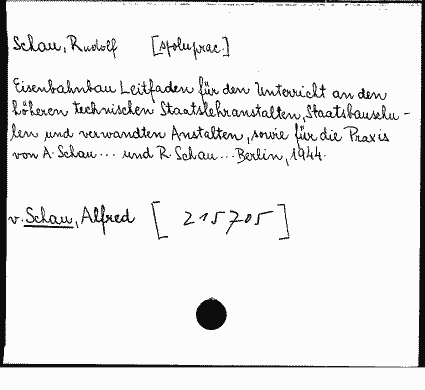 Schau, Rudolf [spoluprac.]
Eisenbahnbau Leitfaden für den Unterricht an den
höheren technischen Staatslehranstalten, Staatsbauschu-
len und verwandten Anstalten, sowie für die Praxis
von A. Schau... und R. Schau... Berlin, 1944.
v. Schau, Alfred [215705]